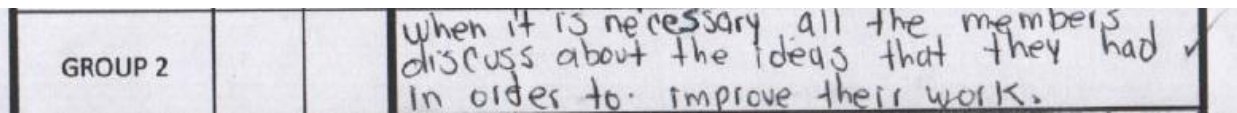 GROUP 2
when it is necessary all the members
discuss about the ideas that they had
in order to. improve their work.